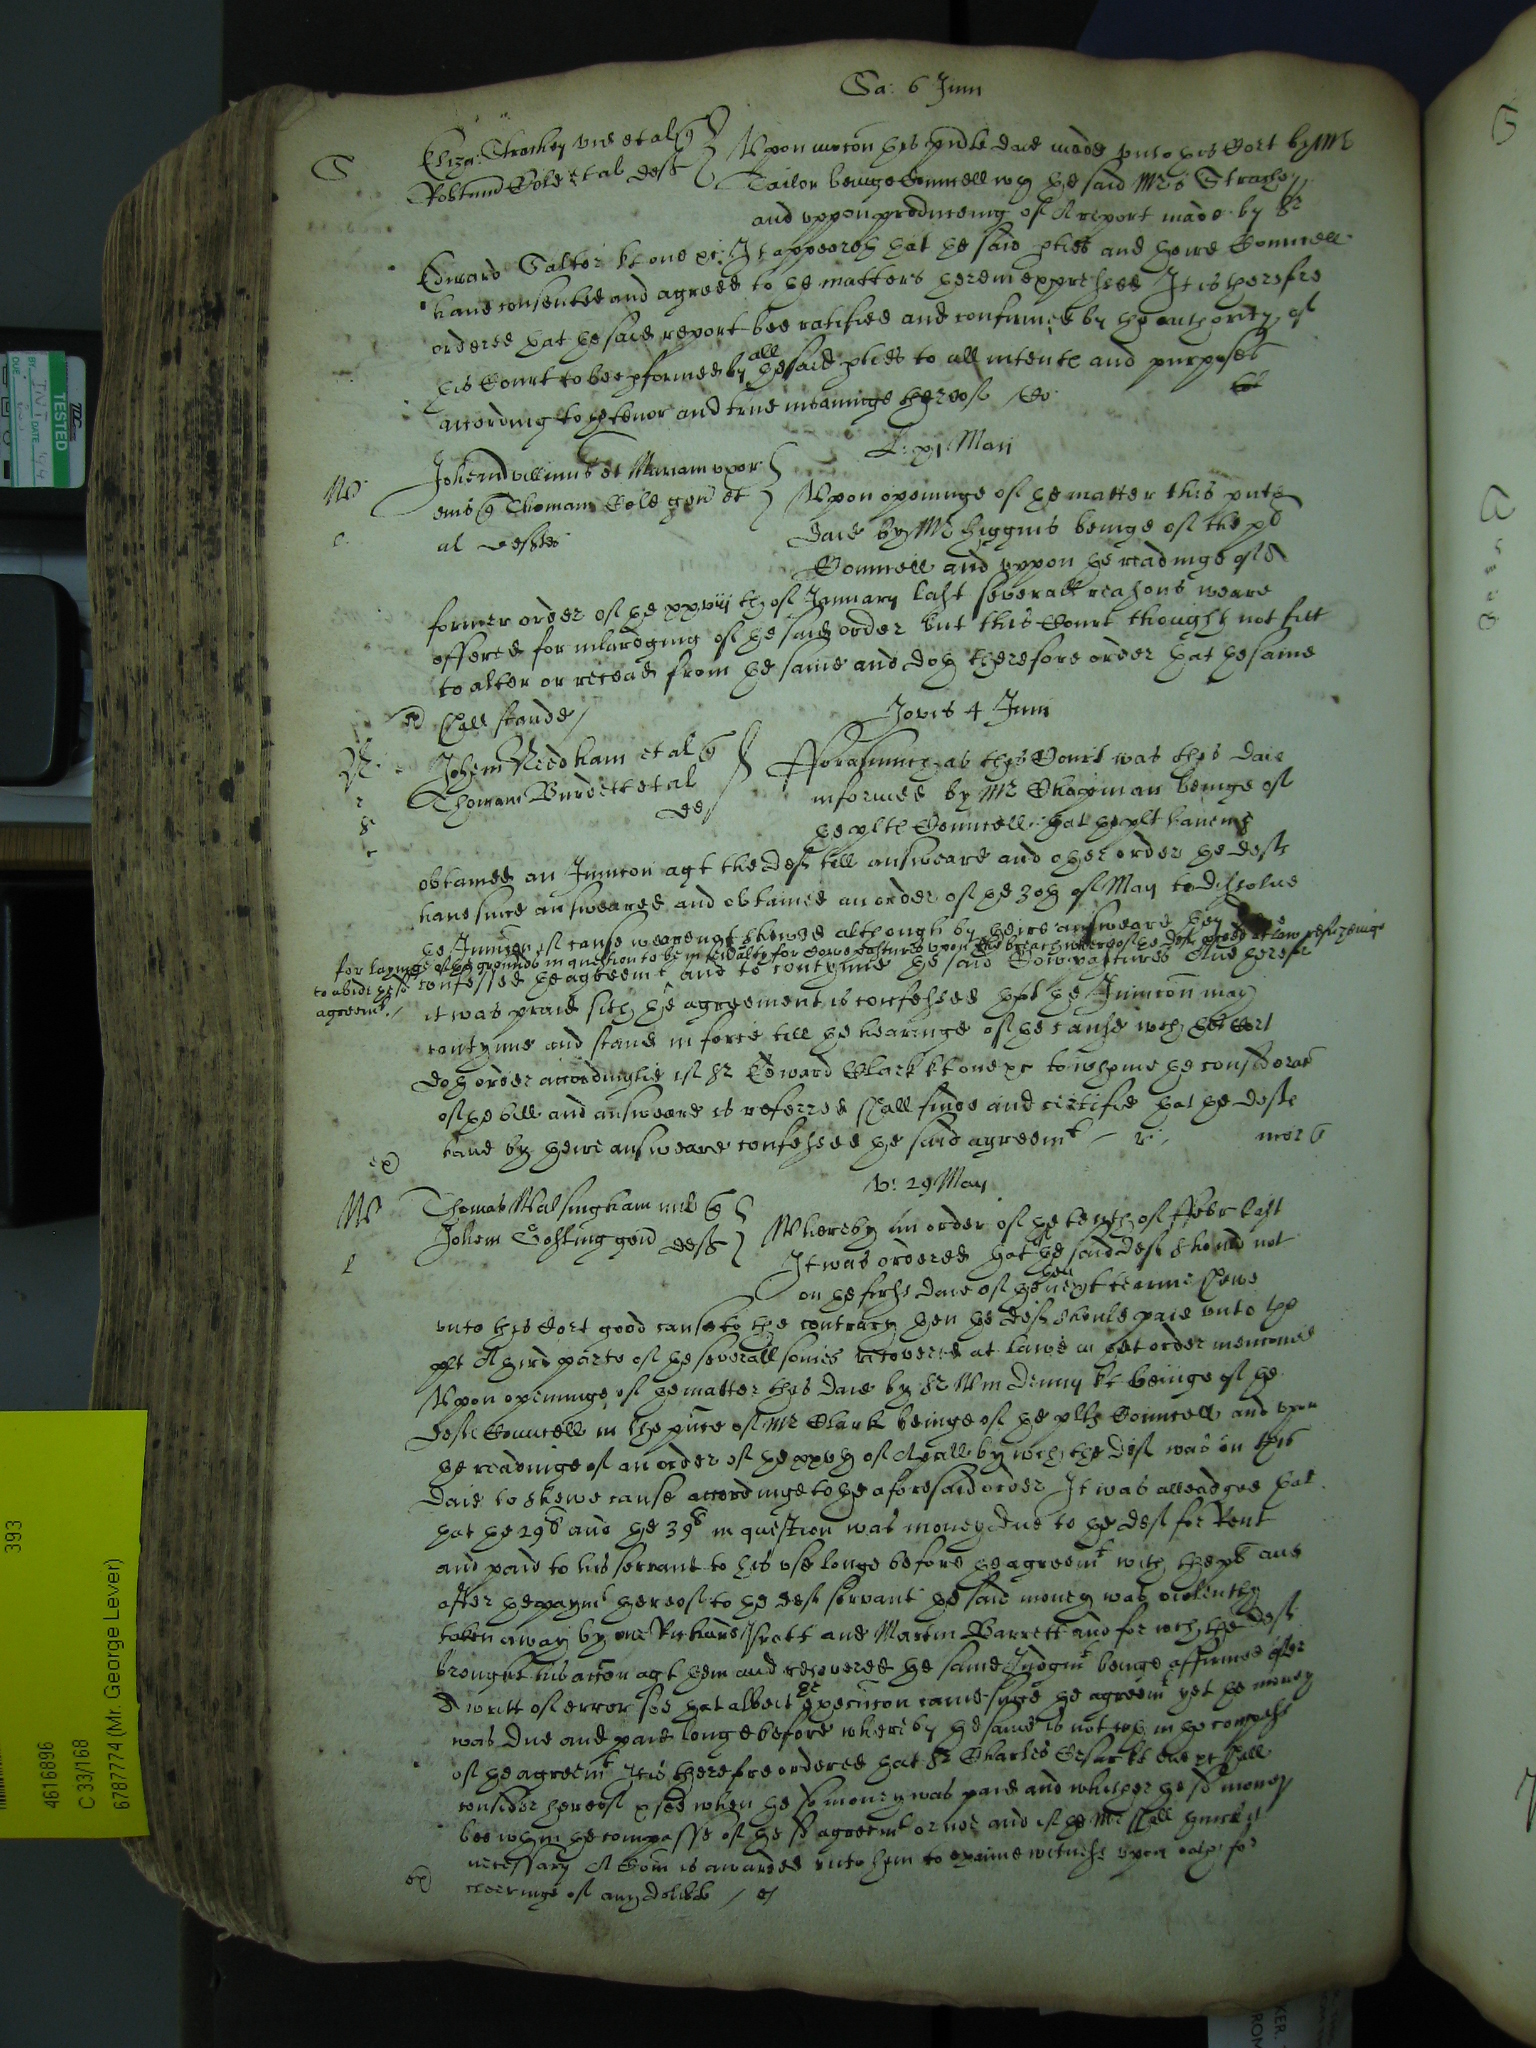 Sa: 6 Junii
S
Eliza: Strachey vid et al Quer
Rob'tum Cole et al defts
Vpon mocon this p'nte daie made vnto this Cort by Mr
Tailor beinge Councell wth the said Mris Strachey
and vppon produceing of A report made by Sr
Edward Salter kt one &c It appeareth that the said pties and their Councell
haue consented and agreed to the matters therein expressed It is therefore
ordered that the said report bee ratified and confirmed by the authority of
this Court to bee pformed by all the said pties to all intents and purposes
according to the tenor and true meaninge thereof
L: xj Maij
W
Johem Willims et Mariam vxor
eius Quer Thomam Cole gen et
al deftes
Vpon openinge of the matter this p'nte
daie by Mr Higgins beinge of the pts
Councell and vppon the readinge of A
former order of the xxviij th of January last severall reasons weare
offered for inlardging of the said order but this Court thought not fitt
to alter or recead from the same and doth therefore order that the same
shall stande /
Jovis 4 Junii
N
Johem Needham et al Quer
Thomam Burdett et al
def
Fforasmuch as this Court was this daie
informed by Mr Chapman beinge of
the plts Councell that the plt haueing
obtained an Iniuncon agt the deft till answeare and other order the defts
haue since answeared and obtained an order of the 30th of May to dissolue
the Iniuncon if cause weare not shewed although by theire answeare they
for layinge of the grounds in question to be in seueralty for Cowe pastures vpon the breach whereof the deft pceed at law refuseinge
to abide the sd
agreemt /
confessed the agreemt and to contynue the said Cowpastures And therefore
it was praied sith the agreement is confessed that the Iniuncon may
contynue and stand in force till the hearinge of the cause wch the Cort
doth order accordinglie if Sr Edward Clark kt one &c to whome the consideracon
of the bill and answeare is referred shall finde and certifie that the defts
haue by theire answeare confessed the said agreemt
V: 29 May
W
Thomas Walsingham mil Quer
Johem Gosling gen deft
Whereby an order of the tenth of Ffebr last
It was ordered that if the said deft should not
on the first daie of the then next tearme shewe
vnto this Cort good cause to the contrary then the deft should paie vnto the
plt A third parte of the severall somes recovered at lawe in that order menconed
Vpon openinge of the matter this daie by Sr Wm Denny kt beinge of the
defts Councell in the p'nce of Mr Clark beinge of the plts Councell and vpon
the readinge of an order of the xxvth of Aprill by wch the deft was on this
daie to shewe cause accordinge to the aforesaid order It was alleadged that
that the 29s and the 39s in question was money due to the deft for Rent
and paid to his servant to his vse longe before the agreemt with the pt and
after the paymt thereof to the defts servant the said money was violently
taken away by one Richard Isratt and Martin Barrett and for wch the deft
brought his accon agt them and recovered the same Iudgmt beinge affirmed after
A writt of error soe that albeit execucon came since the agreemt yet the money
was due and paid longe before whereby the same is not wthin the compasse
of the agreemt It is therefore ordered that Sr Charles Cesar kt one &c shall
consider thereof &c see when the sd money was paid and whether the sd money
bee wthin the compasse of the sd agreemt or not and if the Mr shall thincke it
necessary A Com is awarded vnto him to examine witnesses vpon oath for
cleeringe of any doubt /
TESTED
BY INIT DATE
DUE
393
4616896
C 33/168
6787774 (Mr. George Lever)